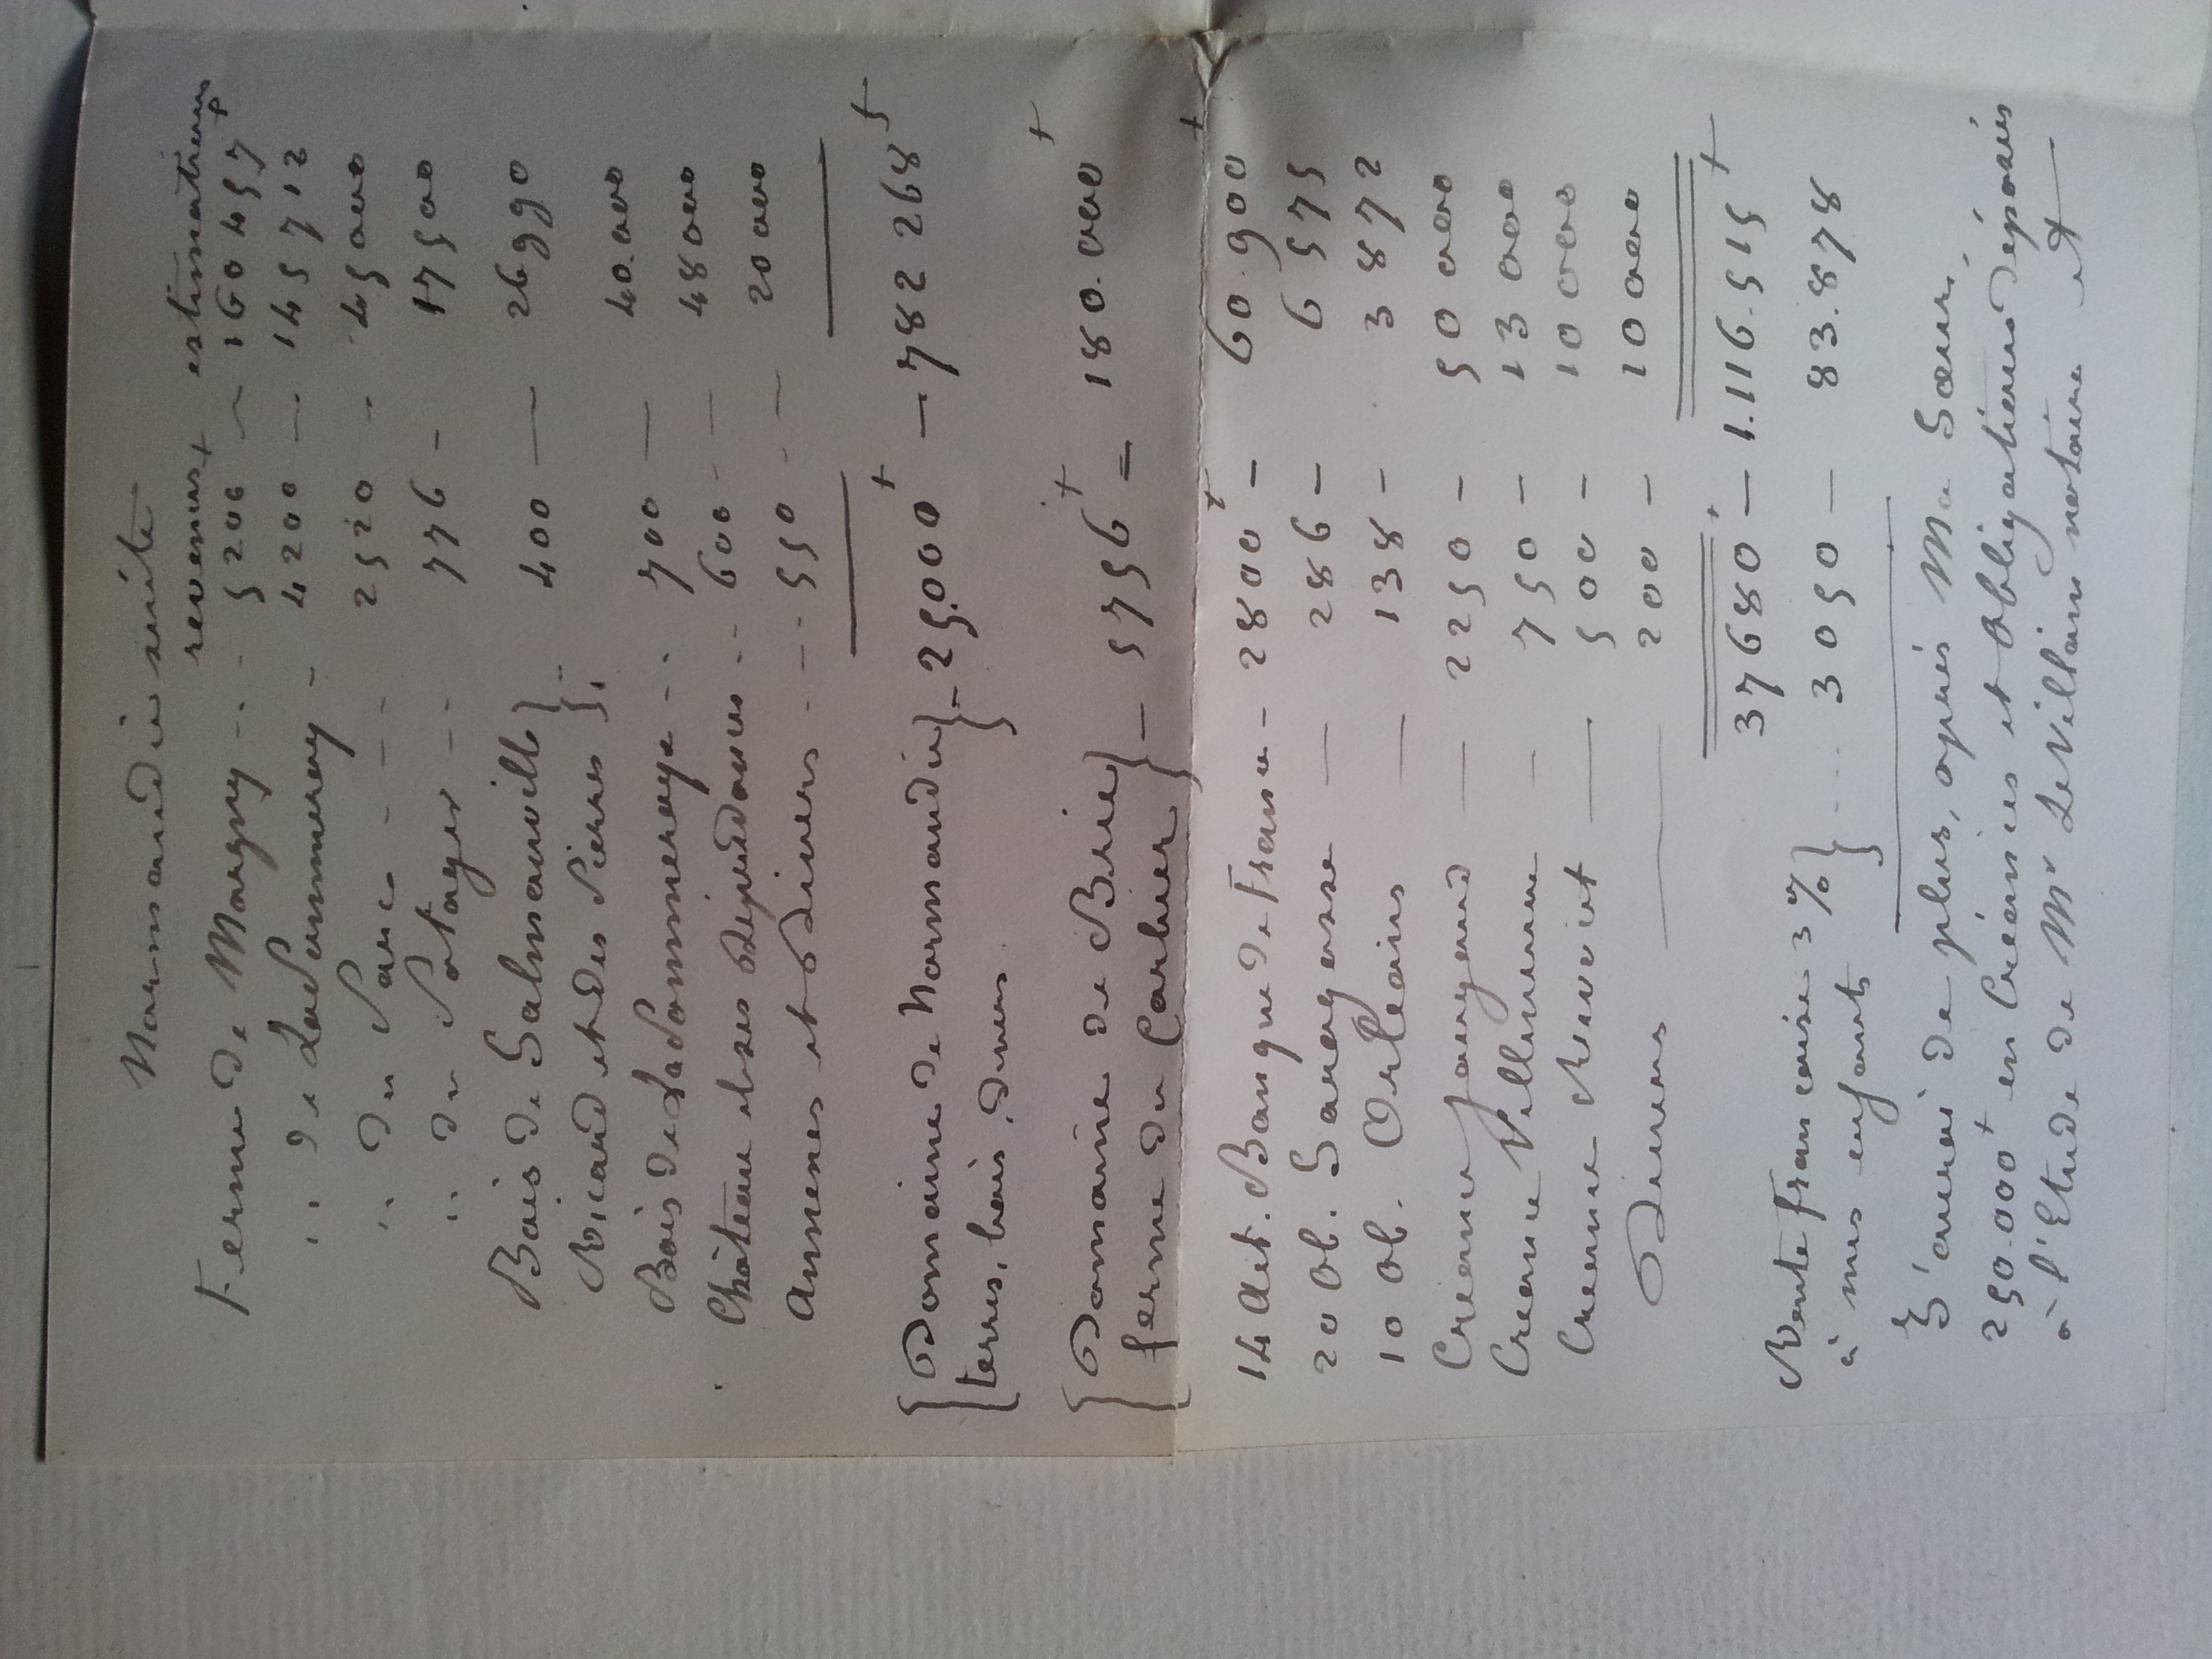 Normandie suite
revenus + estimations
Ferme de Margny - - 5200 - 160457 +
" de La Pommeray - 4200 - 145712
" du Parc - - - 2520 - 45000
" du Potager - - 776 - 17500
Bois de Salmonville } - 400 — 26990
Ricard et des Pierres }
Bois de La Pommeraye - - 700 — 40.000
Château et ses dépendances - - 600 - 48000
Annexes et divers - - - 550 - - 20000
{ Domaine de Normandie } - 25.000 + - 782 268 +
{ terres, bois, divers
{ Domaine de Brie } - 5756 + = 180.000 +
{ ferme du Carbier }
14 Act. Banque de France - 2800 + - 60.900 +
20 Ob. Saragosse — 286 - 6575
10 Ob. Orléans — 138 - 3872
Créance — 2250 - 50000
Créance Villeminne - 750 - 13000
Créance — 500 - 10000
Divers — 200 - 10000
37680 + - 1.116.515 +
Rente Française 3 % } ... 3050 — 83.878
à mes enfants }
J'aurai de plus, après Ma Sœur,
250.000 + en Créances et Obligations déposées
à l'Etude de Mr LeVillain notaire et —